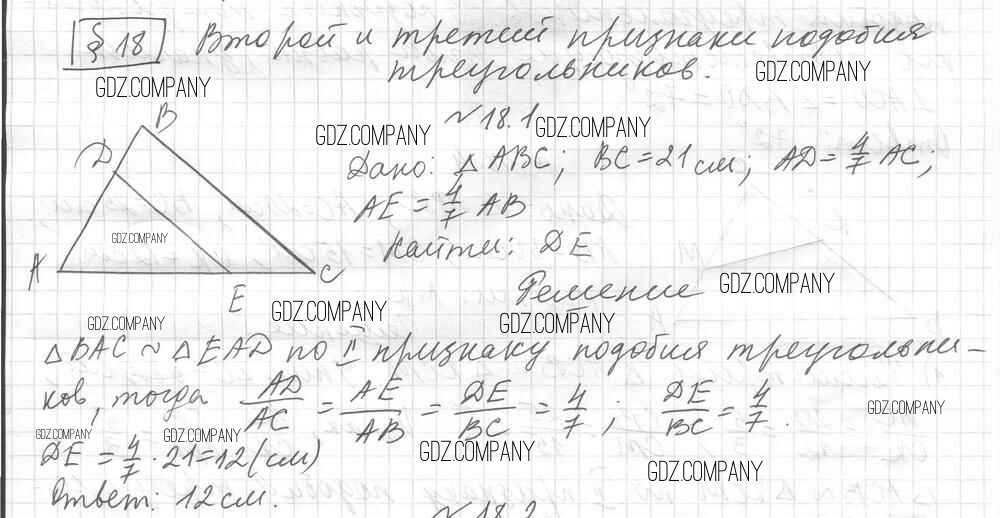 § 18 Второй и третий признаки подобия
треугольников.
GDZ.COMPANY GDZ.COMPANY
№ 18.1
GDZ.COMPANY GDZ.COMPANY
B
D
Дано: △ ABC; BC = 21 см; AD = 4/7 AC;
AE = 4/7 AB
GDZ.COMPANY
Найти: DE
A C
E
Решение
GDZ.COMPANY GDZ.COMPANY
GDZ.COMPANY GDZ.COMPANY
△ BAC ~ △ EAD по II признаку подобия треугольни-
ков, тогда AD/AC = AE/AB = DE/BC = 4/7; DE/BC = 4/7.
GDZ.COMPANY
GDZ.COMPANY GDZ.COMPANY
DE = 4/7 · 21 = 12 (см)
GDZ.COMPANY GDZ.COMPANY
Ответ: 12 см.
№ 18.2